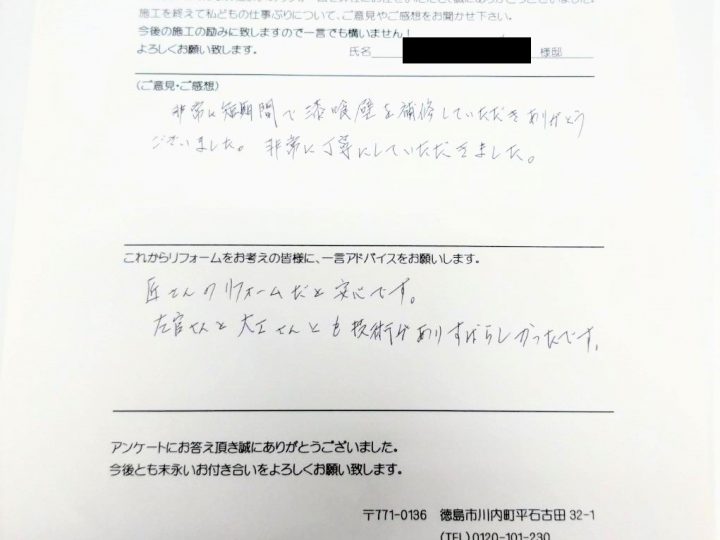 施工を終えて私どもの仕事ぶりについて、ご意見やご感想をお聞かせ下さい。
今後の施工の励みに致しますので一言でも構いません!
よろしくお願い致します。 氏名 様邸
(ご意見・ご感想)
非常に短期間で漆喰壁を補修していただきありがとう
ございました。非常に丁寧にしていただきました。
これからリフォームをお考えの皆様に、一言アドバイスをお願いします。
匠さんのリフォームだと安心です。
左官さんと大工さんとも技術がありすばらしかったです。
アンケートにお答え頂き誠にありがとうございました。
今後とも末永いお付き合いをよろしくお願い致します。
〒771-0136 徳島市川内町平石古田32-1
(TEL)0120-101-230